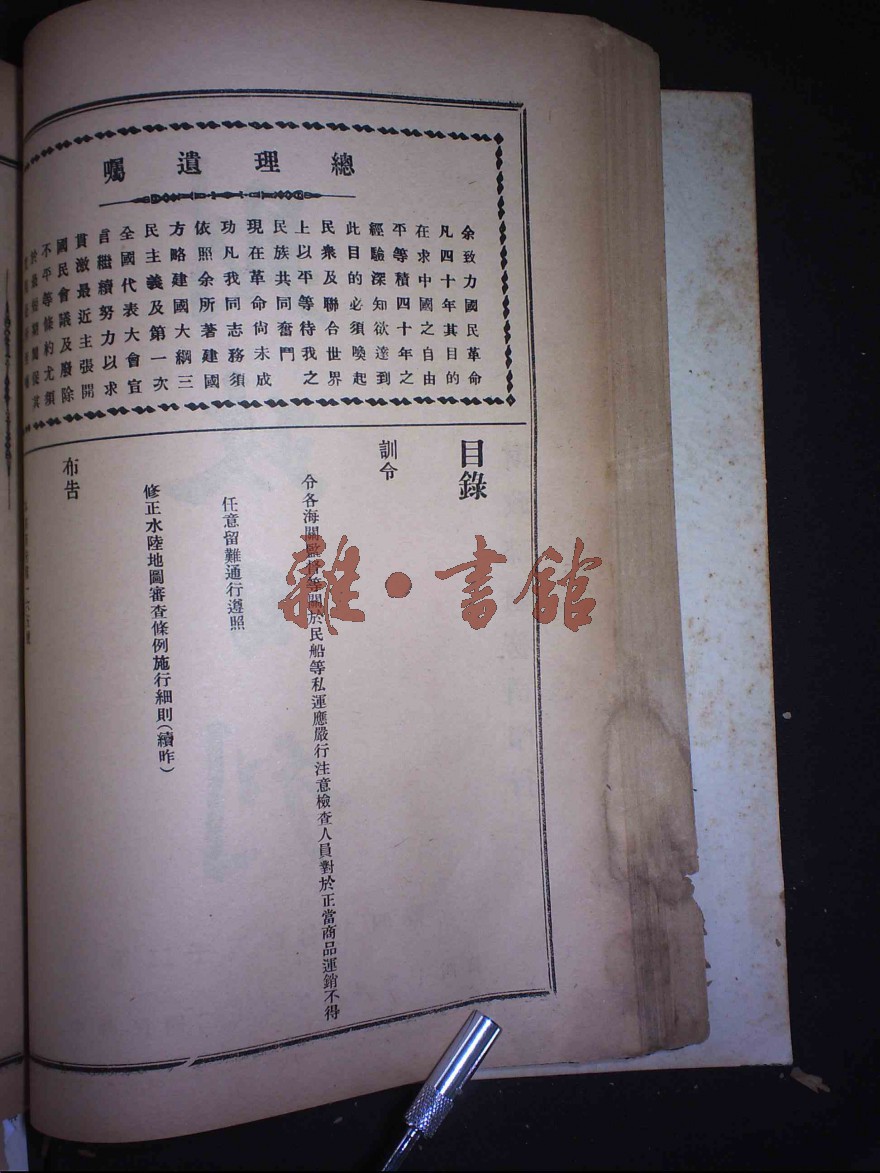 總理遺囑
余致力國民革命
凡四十年其目的
在求中國之自由
平等積四十年之
經驗深知欲達到
此目的必須喚起
民衆及聯合世界
上以平等待我之
民族共同奮鬥
現在革命尙未成
功凡我同志務須
依照余所著建國
方略建國大綱三
民主義及第一次
全國代表大會宣
言繼續努力以求
貫激最近主張開
國民會議及廢除
不平等條約尤須
於最短期間促其
目錄
訓令
令各海關監督等關於民船等私運應嚴行注意檢查人員對於正當商品運銷不得
任意留難通行遵照
修正水陸地圖審查條例施行細則(續昨)
布告
雜·書館